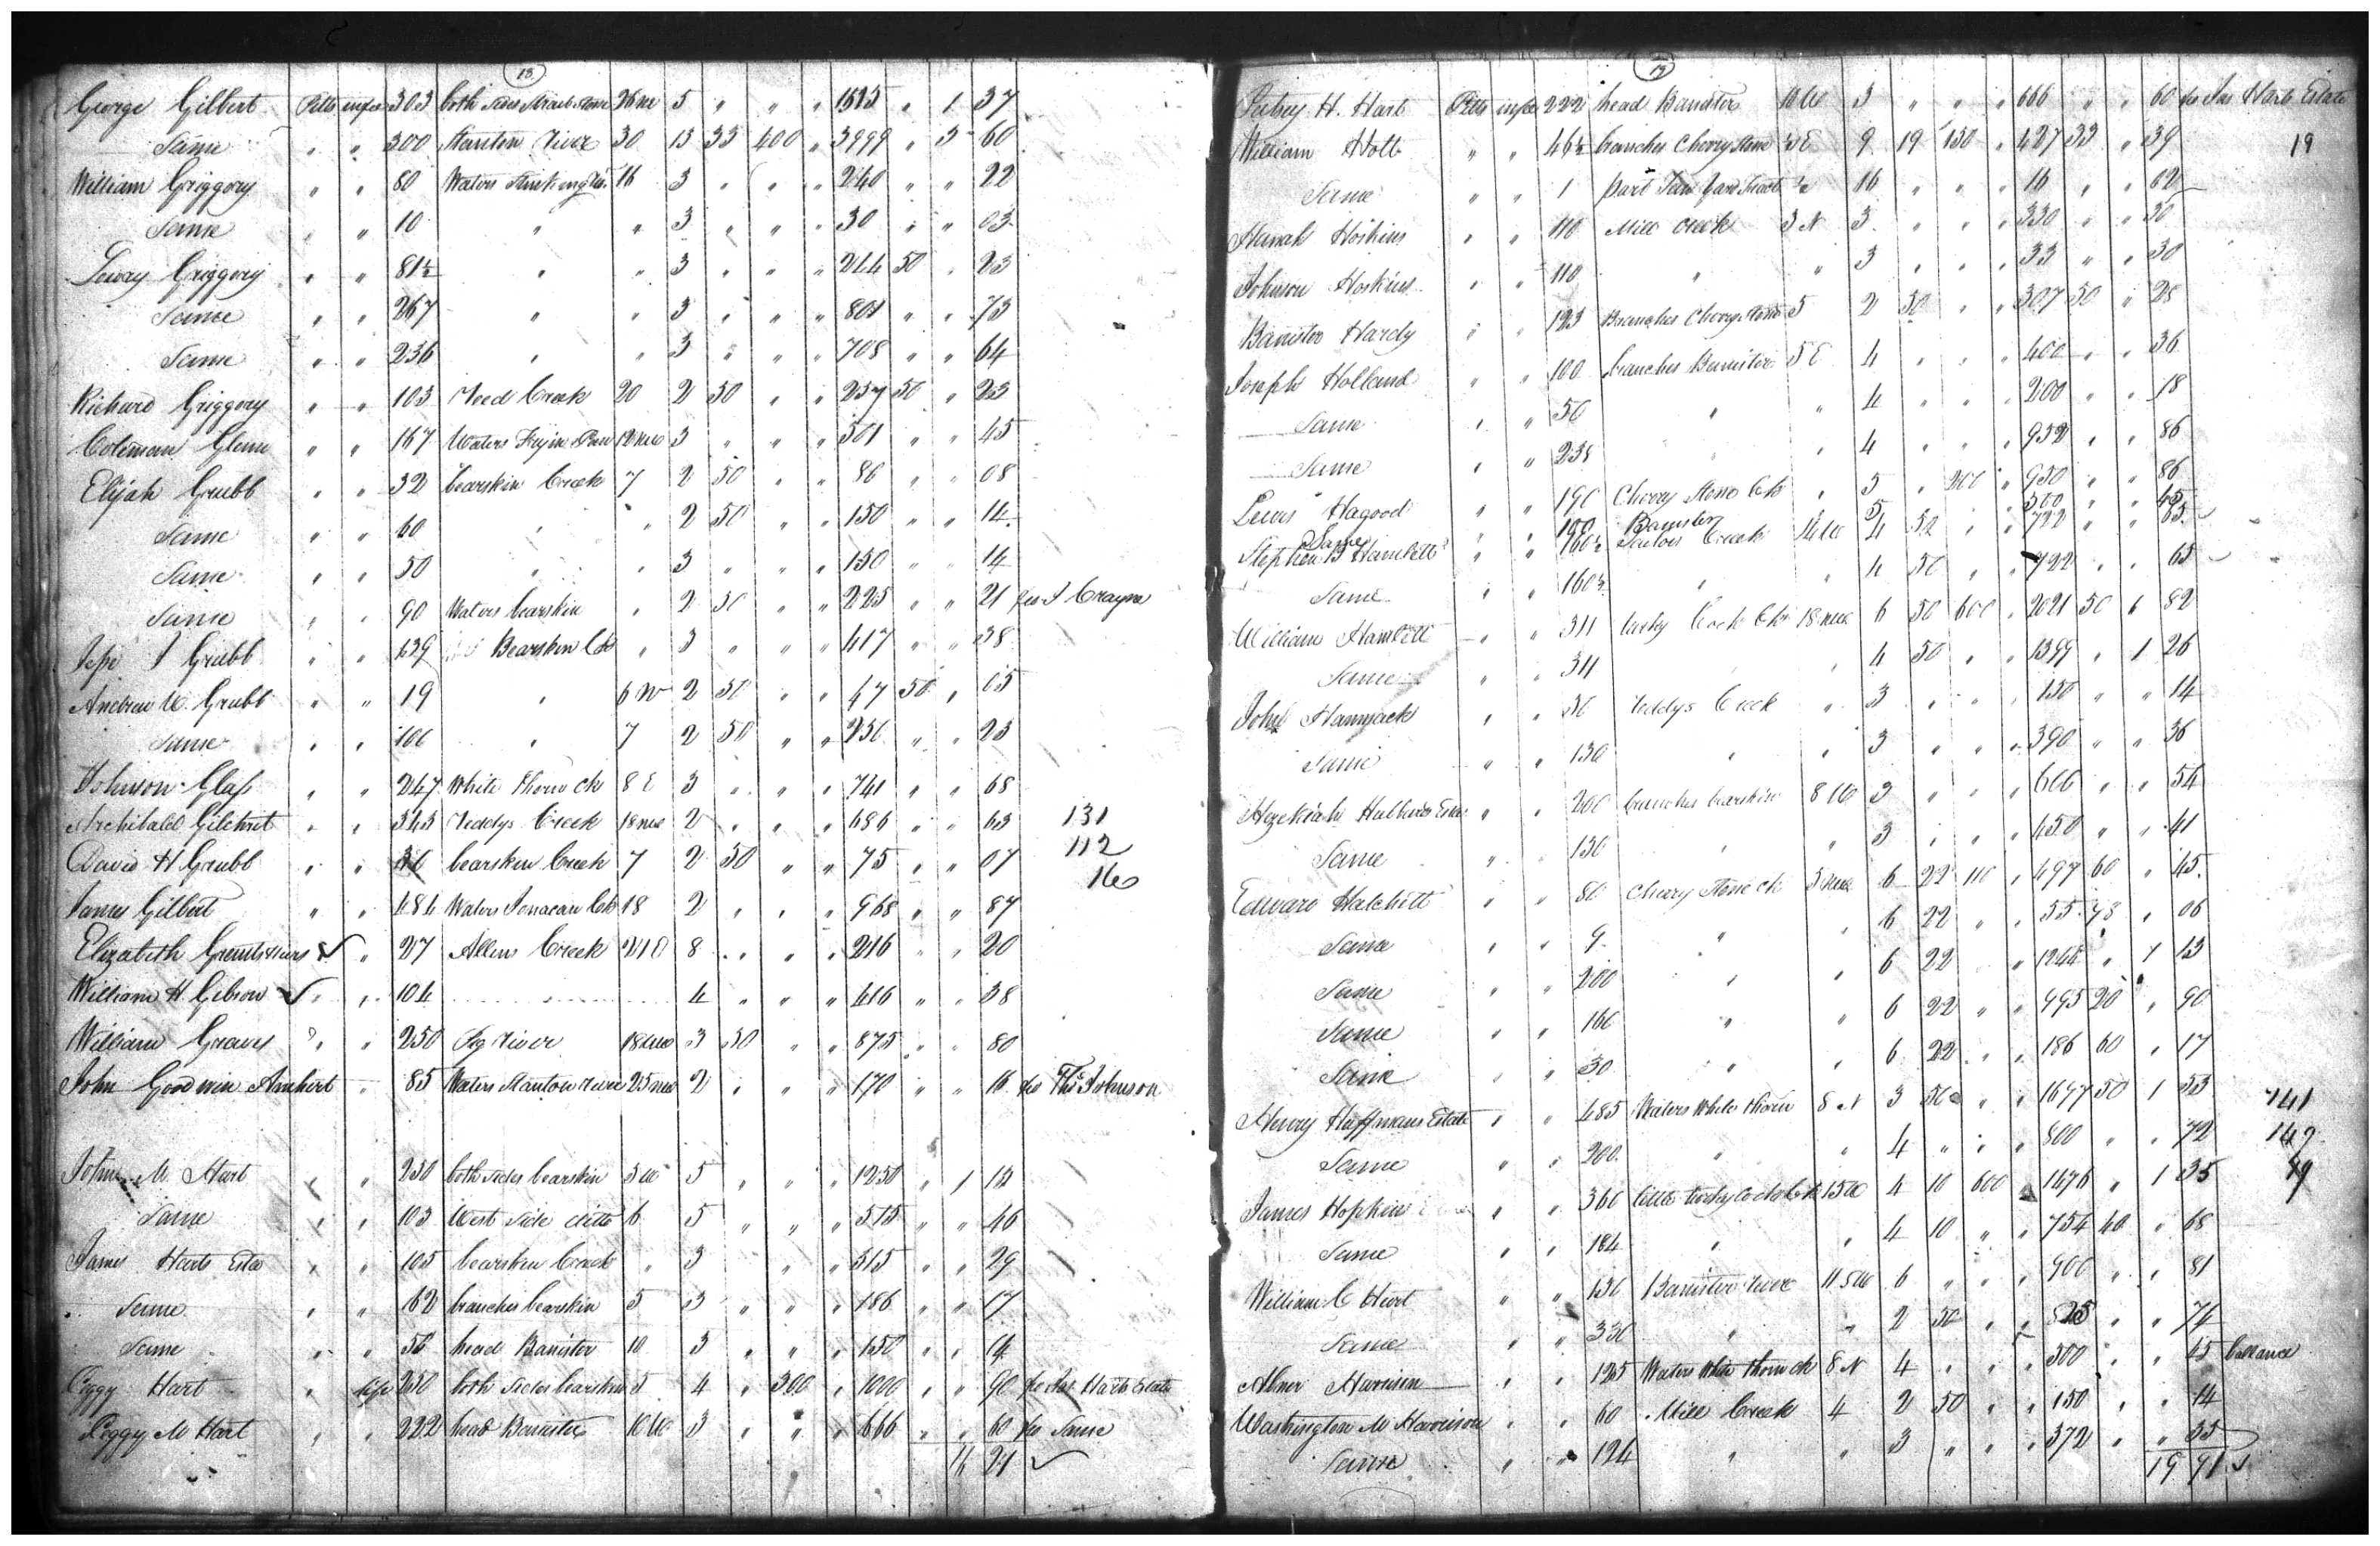 13
George Gilbert Pitts in fee 303 both sides Straitstone 26 ne 5 " " " 1515 " 1 37
Same " " 300 Stanton River 30 13 33 400 " 3999 " 3 60
William Griggory " " 80 Waters Stinking 16 3 " " " 240 " " 22
Same " " 10 " " 3 " " " 30 " " 03
Griggory " " 81½ " " 3 " " " 244 50 " 23
Same " " 267 " " 3 " " " 801 " " 73
Same " " 236 " " 3 " " " 708 " " 64
Richard Griggory " " 103 Reed Creek 20 2 50 " " 257 50 " 23
Coleman Glenn " " 167 Waters Fryin Pan 12 3 " " " 501 " " 45
Elijah Grubb " " 32 bearskin Creek 7 2 50 " " 86 " " 08
Same " " 60 " " 2 50 " " 150 " " 14
Same " " 50 " " 3 " " " 150 " " 14
Same " " 90 Waters bearskin " 2 50 " " 225 " " 21 J Crayne
Jesse J Grubb " " 139 Bearskin Ck " 3 " " " 417 " " 38
Andrew W. Grubb " " 19 " 6 W 2 50 " " 47 50 " 05
Same " " 100 " 7 2 50 " " 250 " " 23
Johnson Glass " " 247 White Thorn ck 8 E 3 " " " 741 " " 68
Archibald Gilchrist " " 343 Reddys Creek 18 ne 2 " " " 686 " " 63 131
David H Grubb " " 30 bearskin Creek 7 2 50 " " 75 " " 07 112
James Gilbert " " 484 Waters Ck 18 2 " " " 968 " " 87 16
Elizabeth " 27 Allens Creek 21 8 " " " 216 " " 20
William H Gibson " " 104 " 4 " " " 416 " " 38
William Graves " " 250 Pig River 18 3 50 " " 875 " " 80
John Goodwin Amherst " 85 Waters Stanton River 25 2 " " " 170 " " 16 Thos Johnson
John M. Hart " " 250 both sides bearskin 5 W 5 " " " 1250 " 1 13
Same " " 103 West Side ditto 6 5 " " " 515 " " 46
James Harts Esta " " 105 bearskin Creek " 3 " " 315 " " 29
Same " " 62 branches bearskin 5 3 " " " 186 " " 17
Same " " 50 head Banister 10 3 " " " 150 " " 14
Peggy Hart " life 250 both sides bearskin 5 4 " 300 " 1000 " " 90 Jas Harts Estate
Peggy M Hart " " 222 head Banister 10 W 3 " " " 666 " " 60 Same
21
13
H. Hart Pitts in fee 222 head Banister 10 W 3 " " " 666 " " 60 Jas Harts Estate
William Holt " " 46½ branches Cherry Stone E 9 19 150 " 427 33 " 39 19
Same " " 1 part Tan Yard Tract 16 " " " 16 " " 02
Hanah Hoskins " " 110 Mill Creek 3 N 3 " " " 330 " " 30
Johnson Hoskins " " 110 " " 3 " " " 33 " " 30
Banister Hardy " " 123 Branches Cherry Stone 5 2 50 " " 307 50 " 28
Joseph Holland " " 100 branches Banister 5 E 4 " " " 400 " " 36
Same " " 50 " " 4 " " " 200 " " 18
Same " " 238 " " 4 " " " 952 " " 86
Lewis Hagood " " 190 Cherry Stone Ck " 5 " 200 " 950 " " 86
Same " " 100 Banister 5 " " " 500 " " 45
Stephen B Hamlett " " 160½ Sailors Creek 14 4 50 " " 722 " " 65
Same " " 160½ " " 4 50 " " 722 " " 65
William Hamlett " " 311 turkey Cock Ck 18 6 50 600 " 2021 50 1 82
Same " " 311 " " 4 50 " " 1399 " 1 26
John Hammack " " 50 Reddys Creek " 3 " " " 150 " " 14
Same " " 130 " " 3 " " " 390 " " 36
Hezekiah Estate " " 200 branches bearskin 8 W 3 " " " 600 " " 54
Same " " 150 " " 3 " " " 450 " " 41
Edward Hatchett " " 80 Cherry Stone ck 3 6 22 110 " 497 60 " 45
Same " " 9 " " 6 22 " " 55 98 " 06
Same " " 200 " " 6 22 " 1244 " 1 13
Same " " 160 " " 6 22 " " 995 20 " 90
Same " " 30 " " 6 22 " " 186 60 " 17
Henry Huffmans Estate " " 485 Waters White thorn 8 N 3 50 " " 1697 50 1 53 141
Same " " 200 " " 4 " " " 800 " " 72 142
James Hopkins " " 360 little turkey Cock Ck 15 W 4 10 600 " 1476 " 1 35 19
Same " " 184 " " 4 10 " " 754 40 " 68
William C Hart " " 150 Banister River 11 SW 6 " " " 900 " " 81
Same " " 330 " " 2 50 " " 825 " " 74
Abner Harrison " " 125 Waters White thorn ck 8 N 4 " " " 500 " " 45 ballance
Washington M Harrison " " 60 Mill Creek 4 2 50 " " 150 " " 14
Same " " 124 " " 3 " " " 372 " " 35
19 91